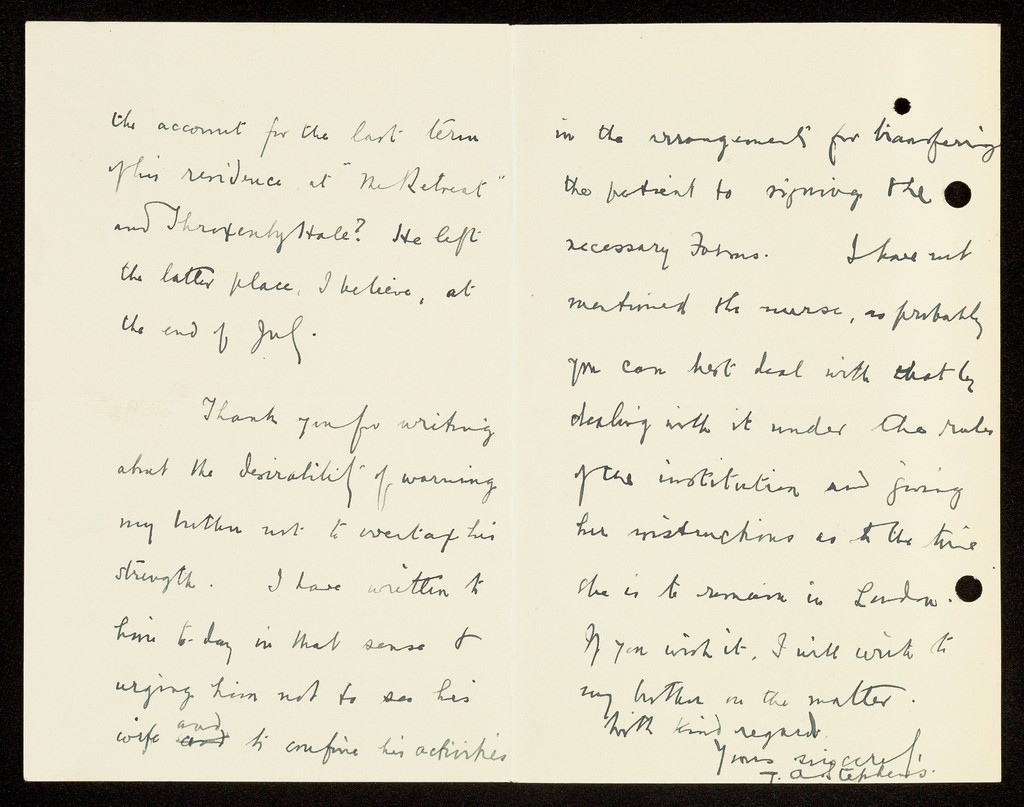 the account for the last term
of his residence at "The Retreat"
and Throxenby Hall? He left
the latter place, I believe, at
the end of July.
Thank you for writing
about the desirability of warning
my brother not to overtax his
strength. I have written to
him to-day in that sense &
urging him not to see his
wife and and to confine his activities
in the arrangements for transferring
the patient to signing the
necessary Forms. I have not
mentioned the nurse, as probably
you can best deal with that by
dealing with it under the rules
of the institution and giving
her instructions as to the time
she is to remain in London.
If you wish it, I will write to
my brother on the matter.
With kind regards
Yours sincerely
J. A. Stephens.